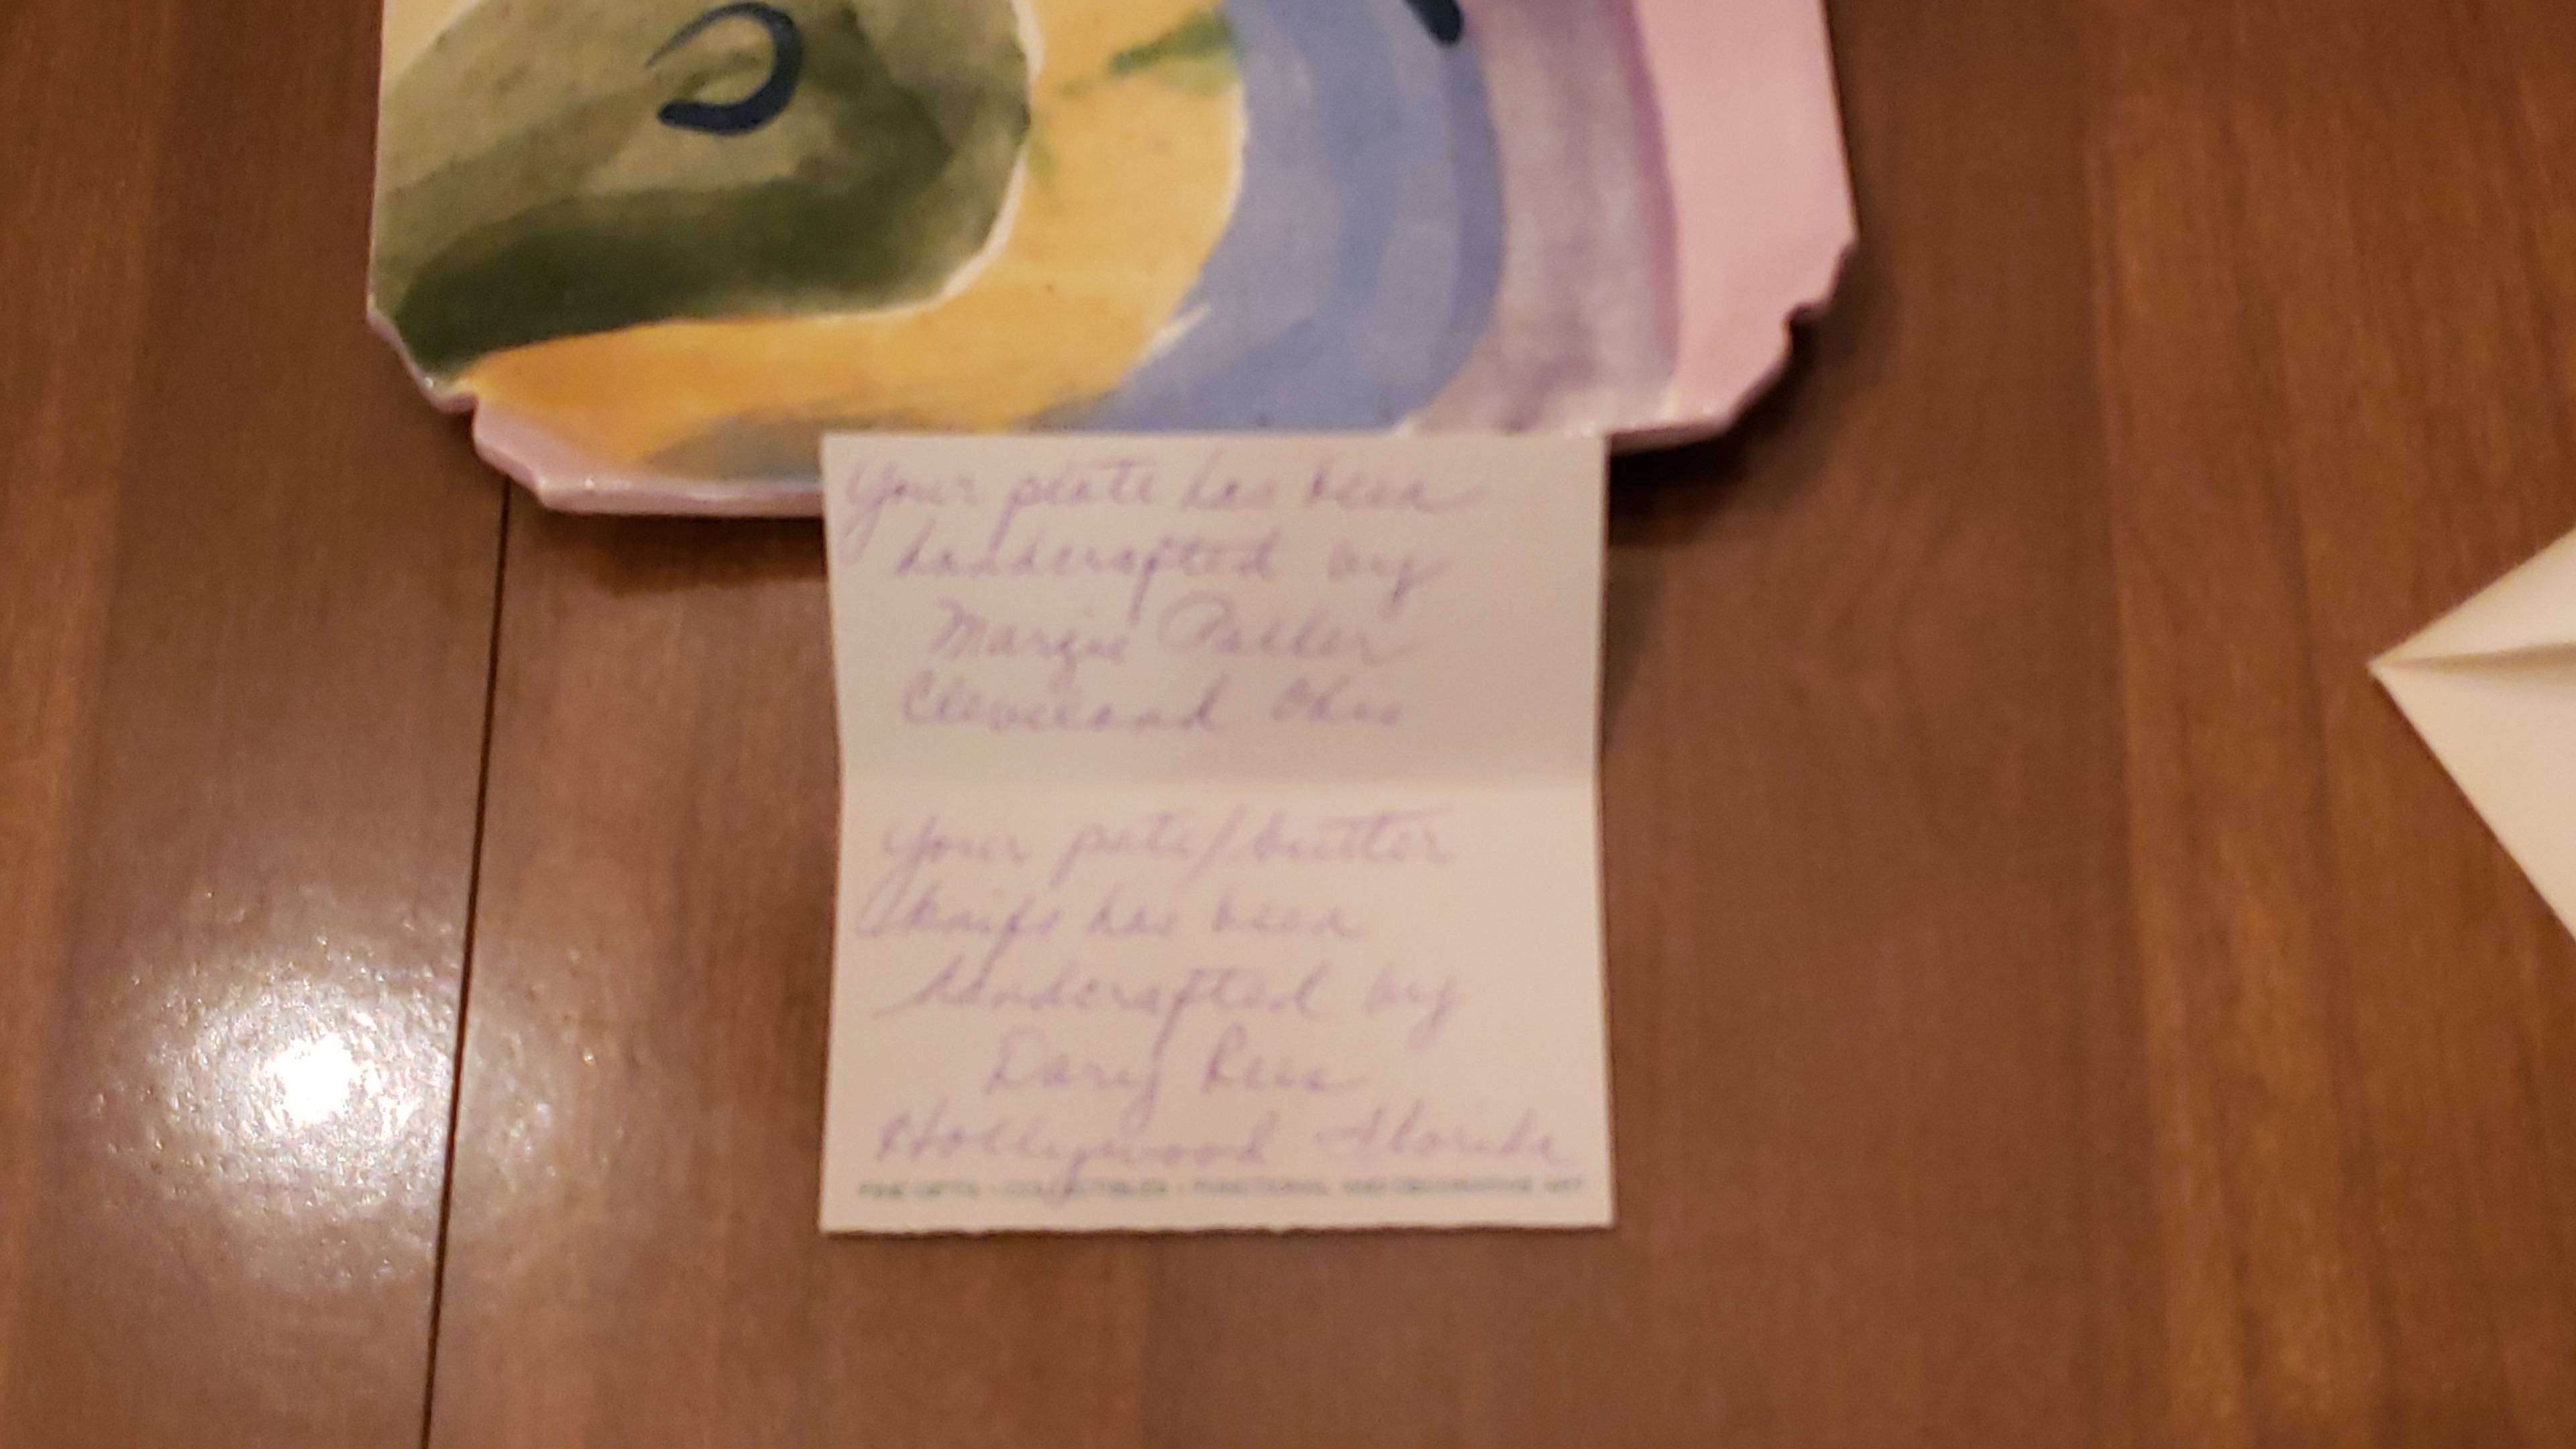 Your plate has been
handcrafted by
Margie
Cleveland Ohio
Your pate/butter
knife has been
handcrafted by
Hollywood Florida
FINE GIFTS • COLLECTIBLES • FUNCTIONAL AND DECORATIVE ART